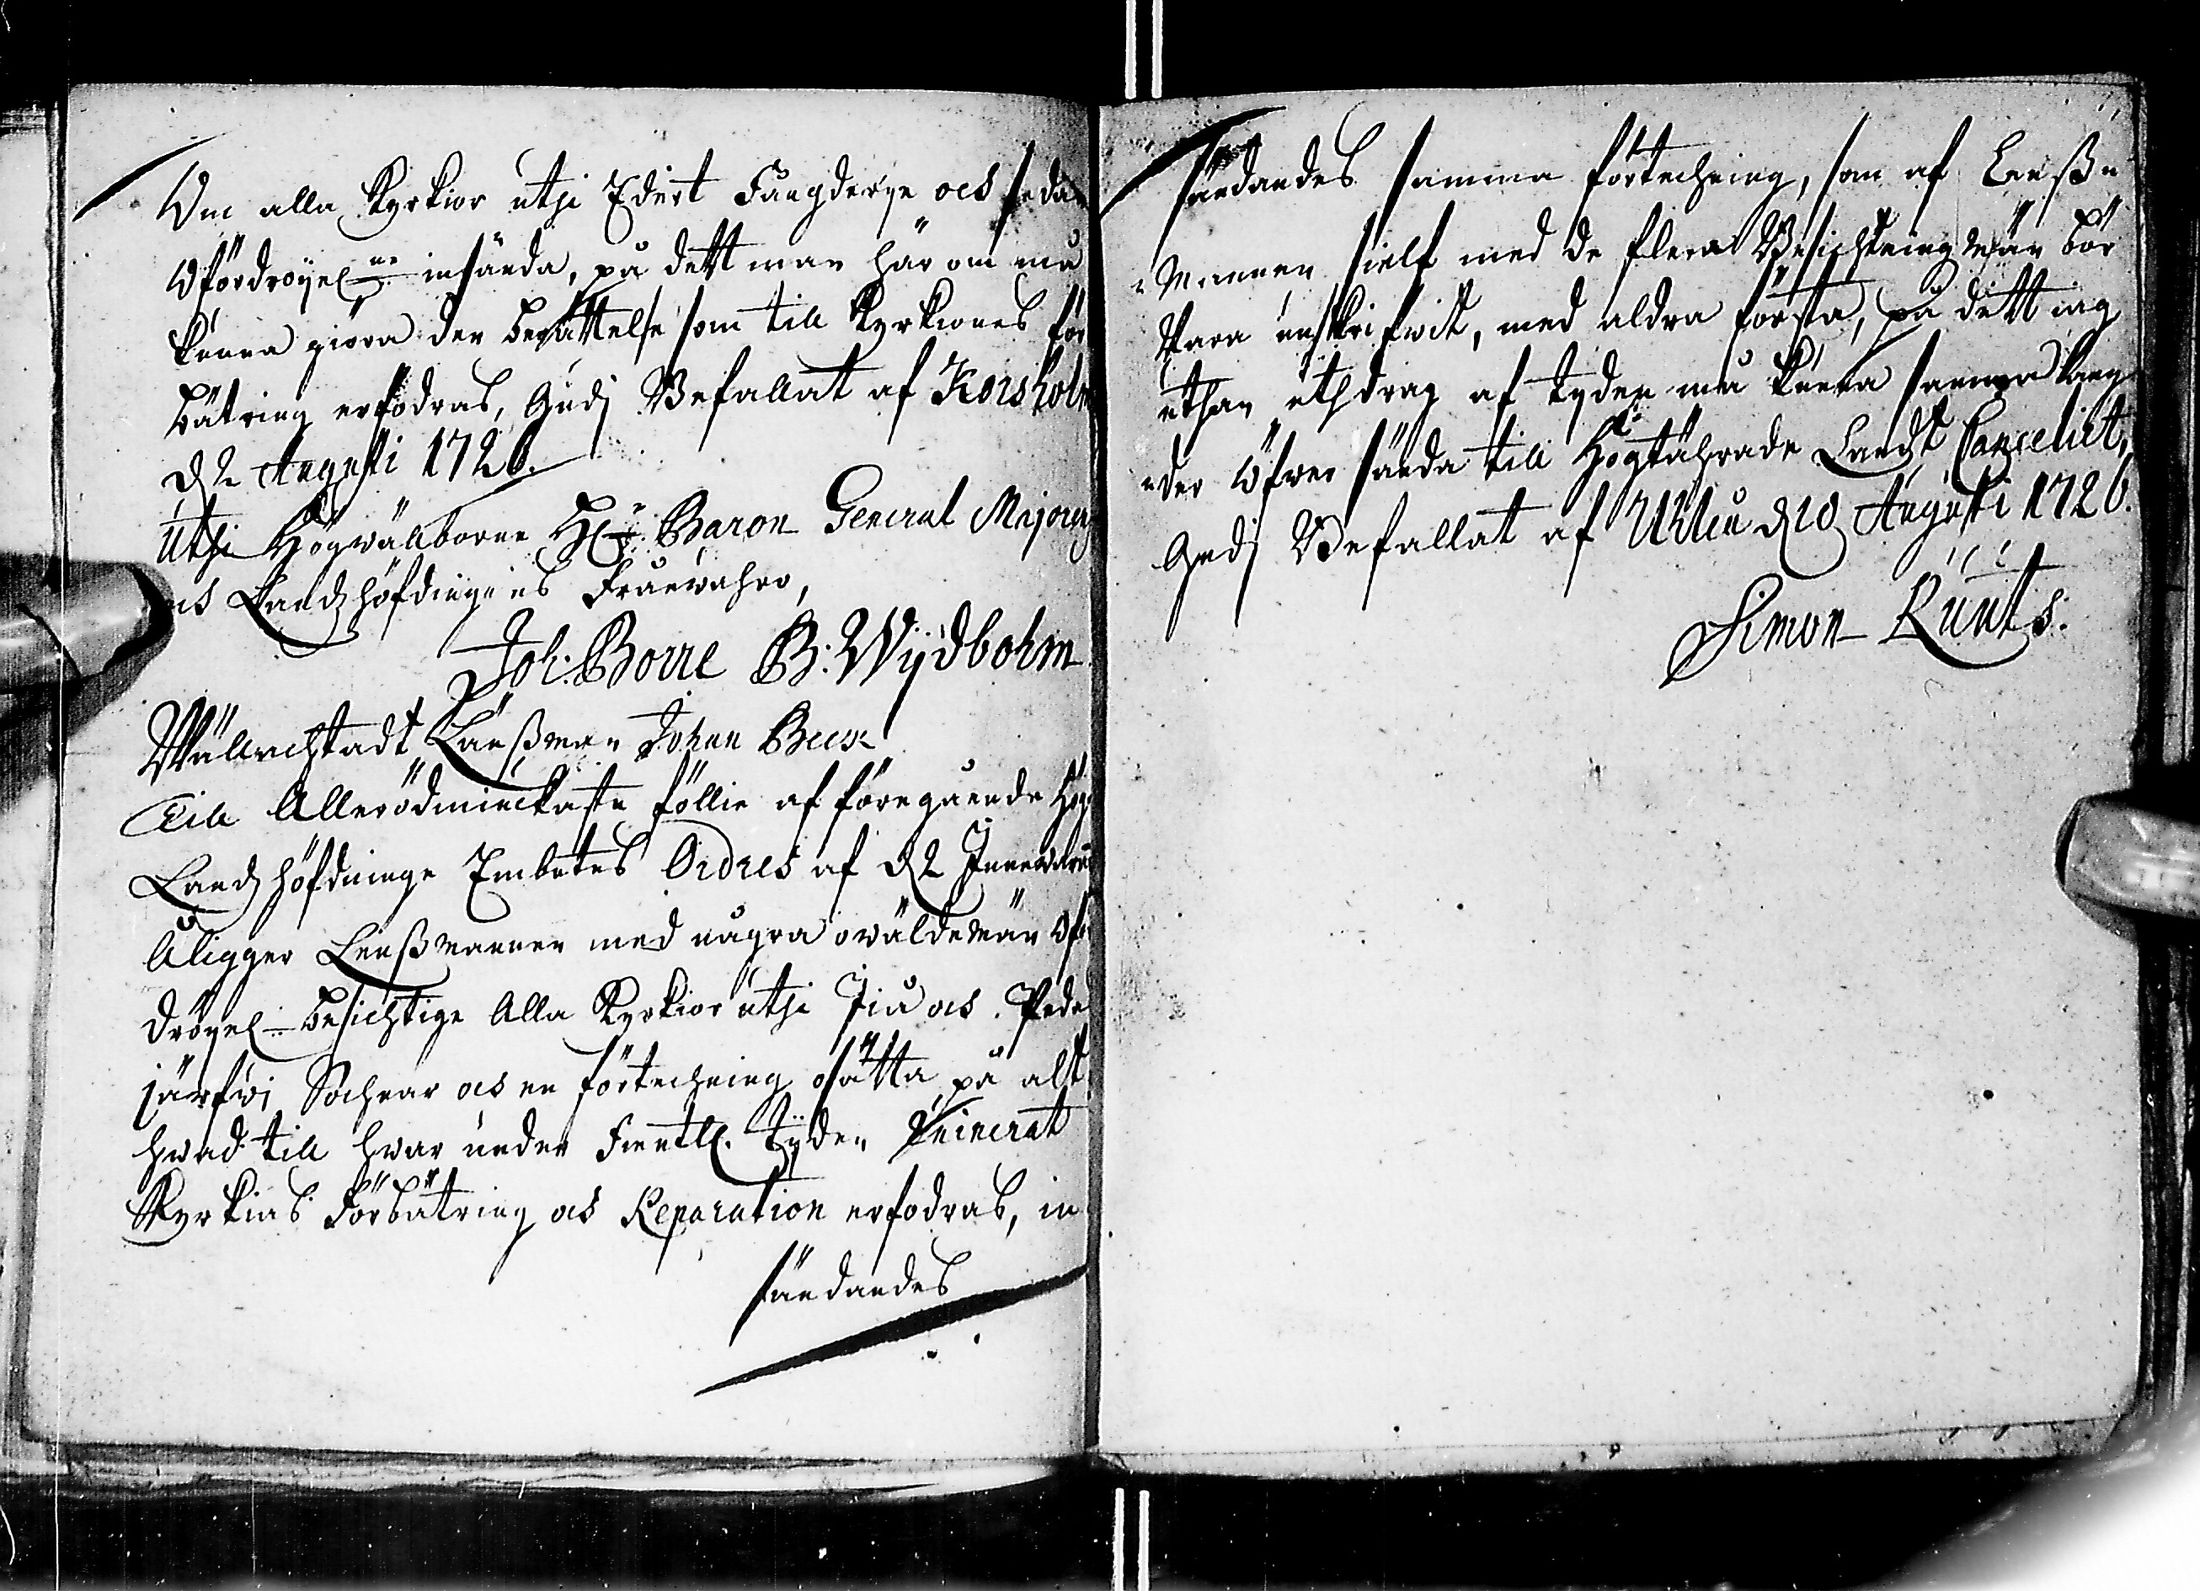 Om alla Kyrkior utj Edert Faugderye och sedan
Ofördröyel:ne insända, på dett man här om må
kunna giöra den berättelse som till Kyrkiones för
bätring erfodras, Gudj Befallat af Korsholm
d 2 Augusti 1726.
Utj Högwälborne H:r Baron General Majoren
och Landzhöfdingens Frånwahro,
Joh: Borre B: Wijdbohm
Wälbetrodt Länßman Johan Beck
Till Allerödmiuckaste föllie af föregående Höga
Landzhöfdinge Embetes Ordres af d 2 Innewarande
Åligger Lenßmannen med några owäldemän Oför
dröyel: besichtige Alla Kyrkior utj Iio och Pudas
järfwj Sochnar och en förtechning opsätta på alt
hwad till hwar under Fiendtl. Tyden Ruinerat
Kyrkias Förbätring och Reparation erfodras, in
sändandes
sändandes samma förtechning, som af Lenß-
Mannen sielf med de flera Besichtningzmän bör
Wara unskrifwit, med aldra första, på dett iag
uthan uthdrag af tyden må kunna samma hang
der öfwer sända till Högtährade Landz Cancelliet,
Gudj Befallat af Uhleå d 10 Augusti 1726.
Simon Lünts.